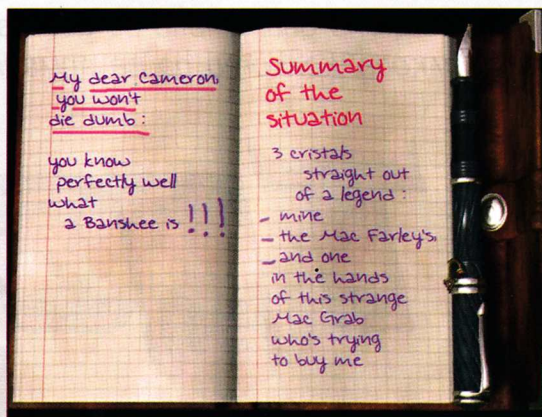 My dear Cameron,
you won't
die dumb :
you know
perfectly well
what
a Banshee is !!!
Summary
of the
situation
3 cristals
straight out
of a legend :
- mine
- the Mac Farley's,
- and one
in the hands
of this strange
Mac Grab
who's trying
to buy me